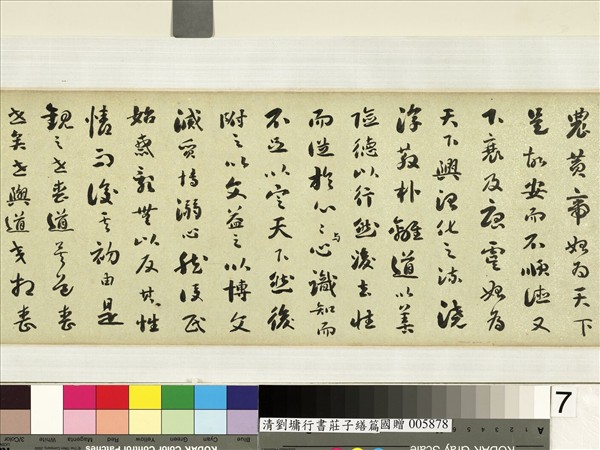 農黃帝始為天下
是故安而不順德又
下衰及唐虞始為
天下興治化之流澆
淳散朴離道以善
險德以行然後去性
而從於心〻与心識知而
不足以定天下然後
附之以文益之以博文
滅質博溺心然後民
始惑亂無以反其性
情而復其初由是
觀之世喪道矣道喪
世矣世與道交相喪
7
清劉墉行書莊子繕篇國贈 005878
Blue Cyan Green Yellow Red Magenta White 3/Color
KODAK Color Control Patches
KODAK Gray Scale